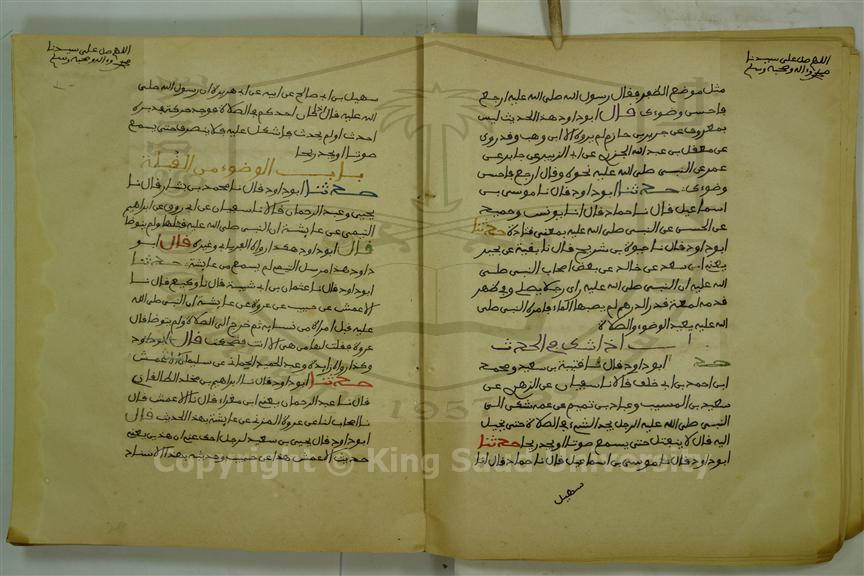 اللهم صل على سيدنا
محمد واله وصحبه وسلم
مثل موضع الظفر فقال رسول الله صلى الله عليه ارجع
فاحسن وضوءك قال ابو داود هذا الحديث ليس
بمعروف عن جرير بن حازم لم يروه الا ابن وهب وقد روى
عن معقل بن عبد الله الجزري عن ابي الزبير عن جابر عن
عمر عن النبي صلى الله عليه نحوه وقال ارجع فاحسن
وضوءك حدثنا ابو داود قال نا موسى بن
اسماعيل قال نا حماد قال انا يونس وحميد
عن الحسن عن النبي صلى الله عليه بمعنى قتادة حدثنا
ابو داود قال نا حيوة بن شريح قال نا بقية عن بحير
يعني ابن سعد عن خالد عن بعض اصحاب النبي صلى
الله عليه ان النبي صلى الله عليه راى رجلا يصلي وفي ظهر
قدمه لمعة قدر الدرهم لم يصبها الماء فامره النبي صلى
الله عليه يعيد الوضوء والصلاة
باب اذا شك في الحدث
حد ابو داود قال نا قتيبة بن سعيد ومحمد
ابن احمد بن ابي خلف قالا نا سفيان عن الزهري عن
سعيد بن المسيب وعباد بن تميم عن عمه شكي الى
النبي صلى الله عليه الرجل يجد الشيء في الصلاة حتى يخيل
اليه قال لا ينفتل حتى يسمع صوتا او يجد ريحا حدثنا
ابو داود قال نا موسى بن اسماعيل قال نا حماد قال انا
سهيل
اللهم صل على سيدنا
محمد واله وصحبه وسلم
سهيل بن ابي صالح عن ابيه عن ابي هريرة ان رسول الله صلى
الله عليه قال اذا كان احدكم في الصلاة فوجد حركة في دبره
احدث او لم يحدث فاشكل عليه فلا ينصرف حتى يسمع
صوتا او يجد ريحا
باب الوضوء من القبلة
حدثنا ابو داود قال نا محمد بن بشار قال نا
يحيى وعبد الرحمان قالا نا سفيان عن ابي روق عن ابراهيم
التيمي عن عايشة ان النبي صلى الله عليه قبلها ولم يتوضا
قال ابو داود هكذا رواه الفريابي وغيره قال ابو
داود هذا مرسل التيمي لم يسمع من عايشة حدثنا
ابو داود قال نا عثمان بن ابي شيبة قال نا وكيع قال نا
الاعمش عن حبيب عن عروة عن عايشة ان النبي صلى الله
عليه قبل امراة من نسايه ثم خرج الى الصلاة ولم يتوضا قال
عروة فقلت لها من هي الا انت فضحكت قال ابو داود
وكذا رواه زايدة وعبد الحميد الحماني عن سليمان الاعمش
حدثنا ابو داود قال نا ابراهيم بن مخلد الطالقاني
قال نا عبد الرحمان يعني ابن مغراء قال نا الاعمش قال
نا اصحاب لنا عن عروة المزني عن عايشة بهذا الحديث قال
ابو داود قال يحيى بن سعيد لرجل احك عني ان هذين يعني
حديث الاعمش هذا عن حبيب وحديثه بهذا الاسناد
1957
Copyright © King Saud University